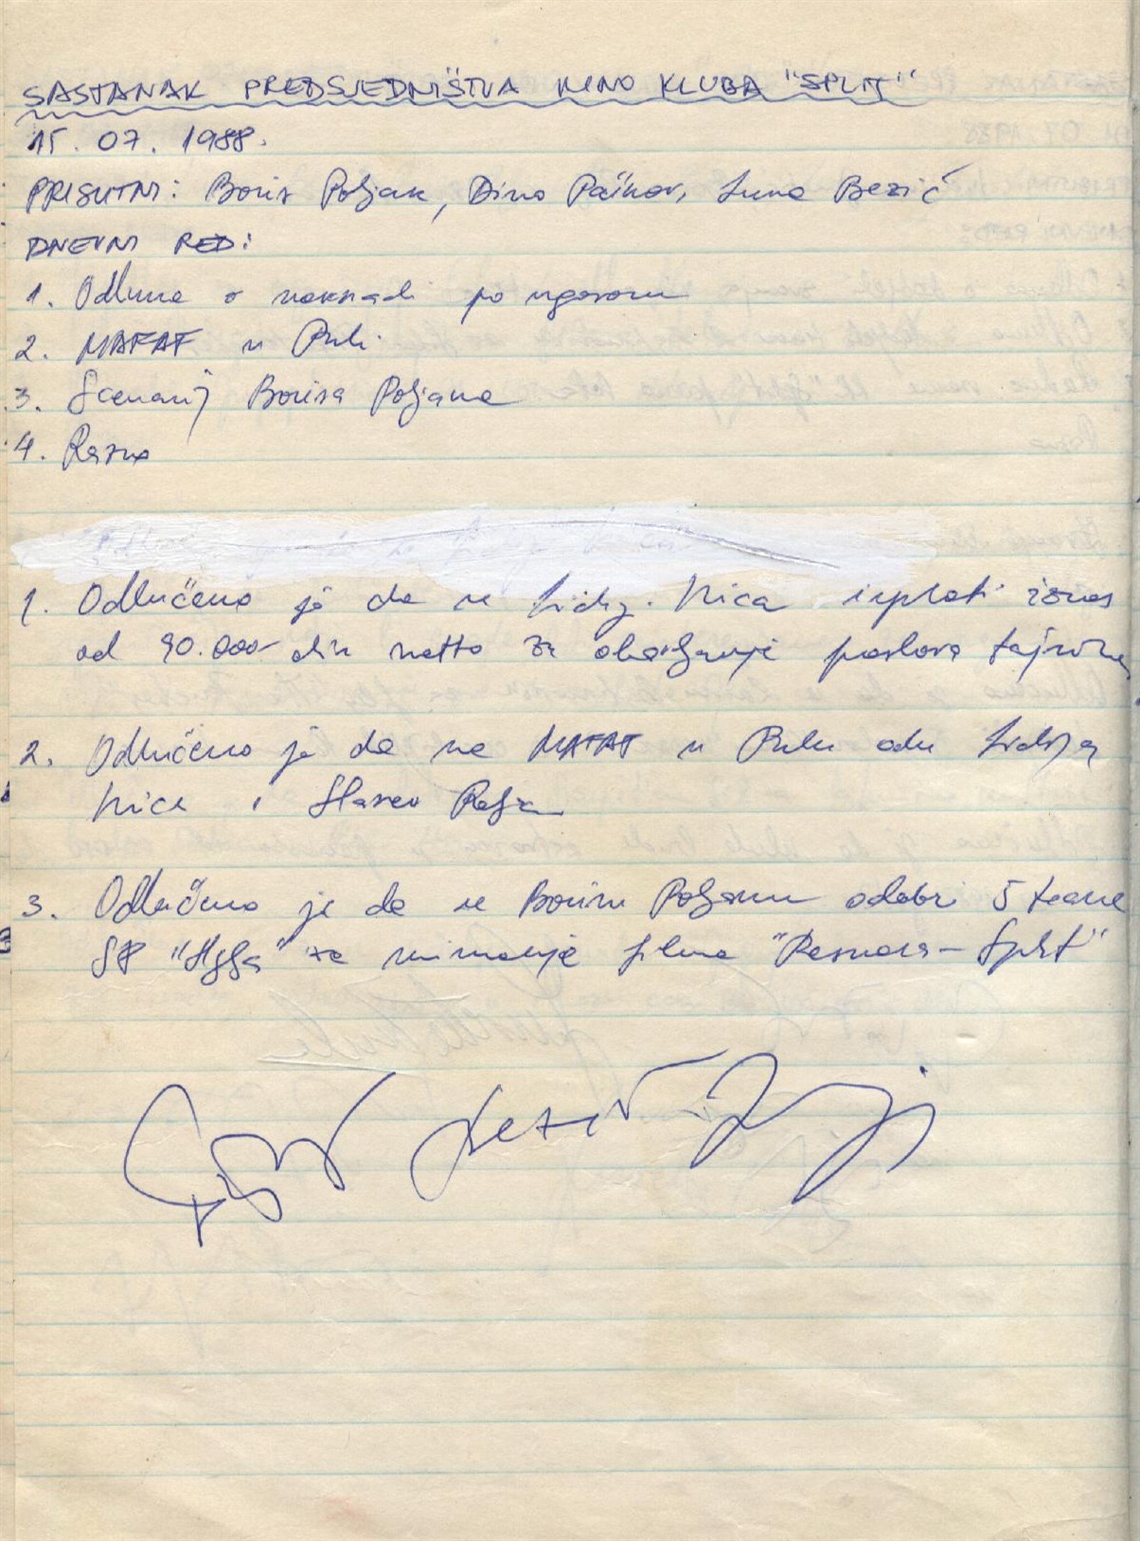 SASTANAK PREDSJEDNIŠTVA KINO KLUBA "SPLIT"
15. 07. 1988.
PRISUTNI: Boris Poljak, Dino Pažnov, Luna Bezić
DNEVNI RED:
1. Odluka o naknadi po ugovoru
2. MAFAF u Puli
3. Scenarij Borisa Poljaka
4. Razno
1. Odlučeno je da se Lidiji Kica isplati iznos
od 90.000 din netto za obavljanje poslova tajnika
2. Odlučeno je da na MAFAF u Pulu odu Lidija
Kica i Slaven Relja
3. Odlučeno je da se Borisu Poljaku odobri 5 traka
S8 "Agfa" za snimanje filma "Resnara - Split"
Bezić